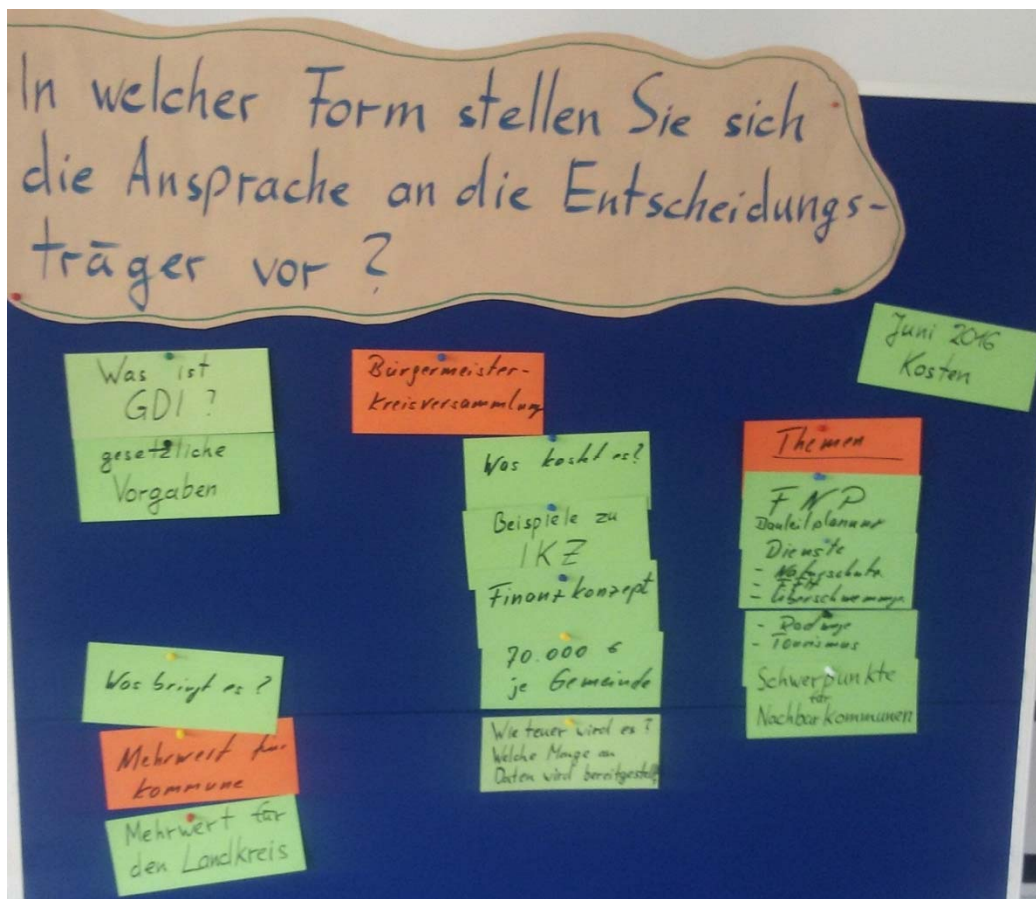 In welcher Form stellen Sie sich
die Ansprache an die Entscheidungs-
träger vor?
Juni 2016
Kosten
Was ist
GDI?
gesetzliche
Vorgaben
Was bringt es?
Mehrwert für
Kommune
Mehrwert für
den Landkreis
Bürgermeister-
kreisversammlung
Was kostet es?
Beispiele zu
IKZ
Finanzkonzept
70.000 €
je Gemeinde
Wie teuer wird es?
Welche Menge an
Daten wird bereitgestellt
Themen
FNP
Bauleitplanung
Dienste
- Naturschutz
- FFH
- Überschwemmge
- Radwege
- Tourismus
Schwerpunkte
für
Nachbarkommunen